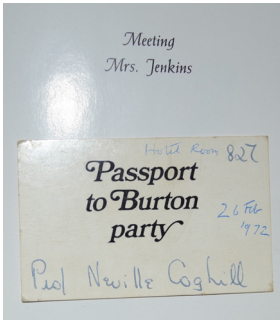 Meeting
Mrs. Jenkins
Hotel Room 827
Passport
to Burton
party
26 Feb
1972
Prof Neville Coghill